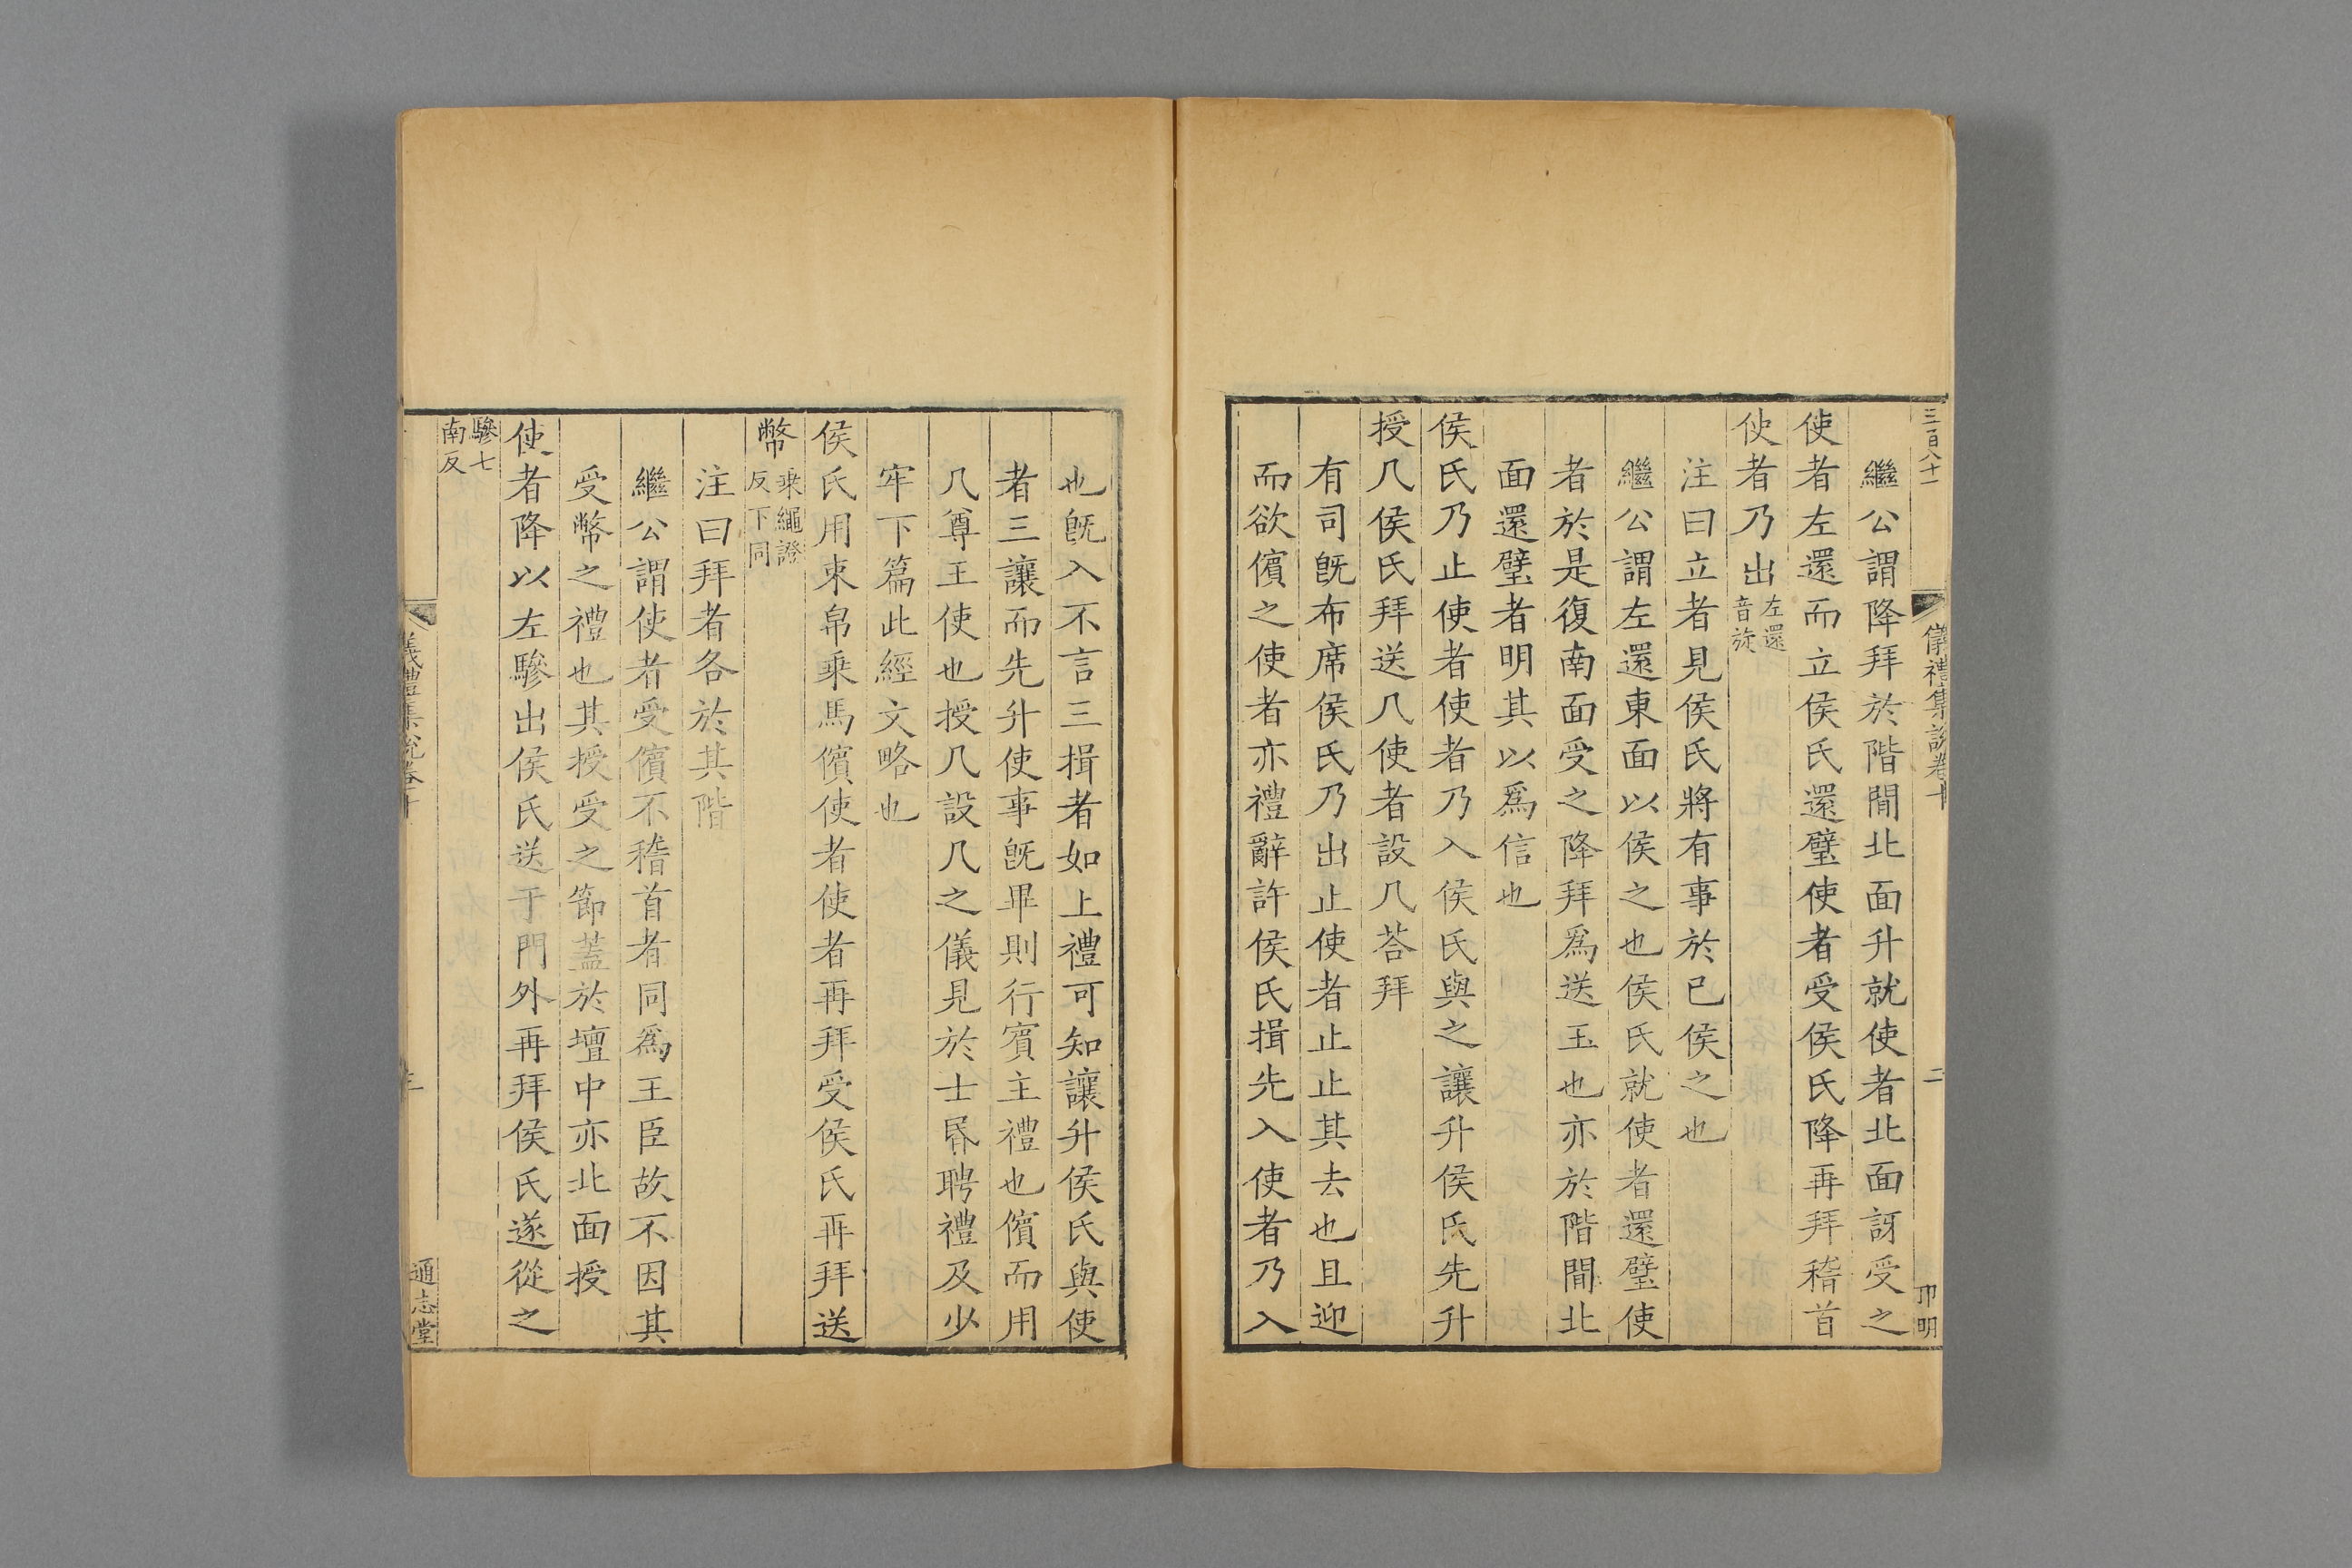 三百八十一
儀禮集說卷十
二
卬明
繼公謂降拜於階閒北面升就使者北面訝受之
使者左還而立侯氏還璧使者受侯氏降再拜稽首
使者乃出左還音旋
注曰立者見侯氏將有事於已俟之也
繼公謂左還東面以俟之也侯氏就使者還璧使
者於是復南面受之降拜爲送玉也亦於階閒北
面還璧者明其以爲信也
侯氏乃止使者使者乃入侯氏與之讓升侯氏先升
授几侯氏拜送几使者設几荅拜
有司旣布席侯氏乃出止使者止止其去也且迎
而欲儐之使者亦禮辭許侯氏揖先入使者乃入
也旣入不言三揖者如上禮可知讓升侯氏與使
者三讓而先升使事旣畢則行賓主禮也儐而用
几尊王使也授几設几之儀見於士昬聘禮及少
牢下篇此經文略也
侯氏用束帛乗馬儐使者使者再拜受侯氏再拜送
幣乗繩證反下同
注曰拜者各於其階
繼公謂使者受儐不稽首者同爲王臣故不因其
受幣之禮也其授受之節蓋於壇中亦北面授
使者降以左驂出侯氏送于門外再拜侯氏遂從之
驂七南反
儀禮集說卷十
三
通志堂